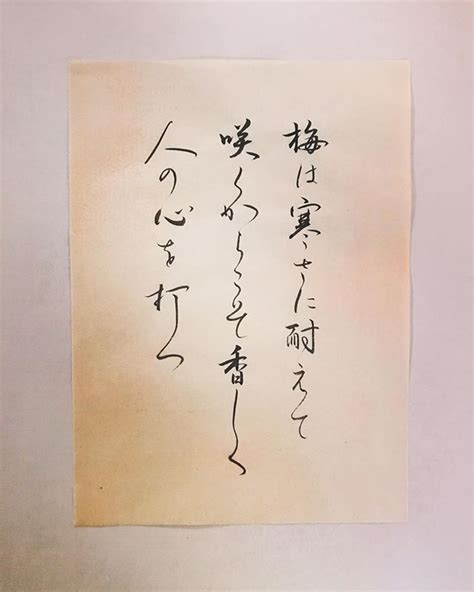 梅は寒さに耐えて
咲くからこそ香しく
人の心を打つ